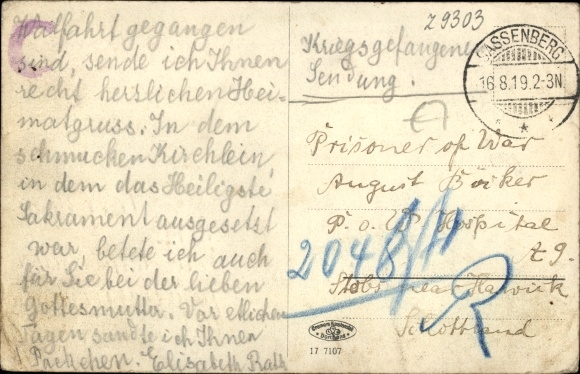 Wallfahrt gegangen
sind, sende ich Ihnen
recht herzlichen Hei-
matgruss. In dem
schmucken Kirchlein,
in dem das Heiligste
Sakrament ausgesetzt
war, betete ich auch
für Sie bei der lieben
Gottesmutter. Vor etlichen
Tagen sandte ich Ihnen
Päckchen. Elisabeth Rath
Z9303
Kriegsgefangene
Sendung.
SASSENBERG
16.8.19.2-3N
Prisoner of War
August Böcker
P. o. W Hospital
Z9.
Stobs near Hawick
Schottland
2048/11
R
17 7107